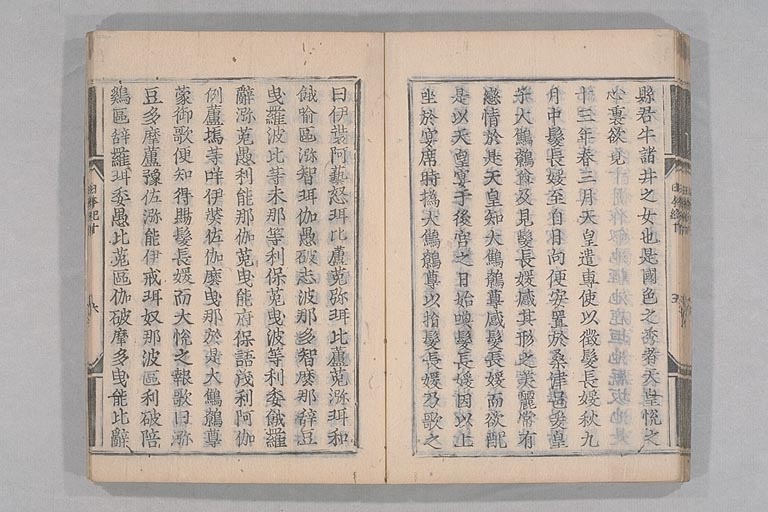 縣君牛諸井之女也是國色之秀者天皇悅之
心裏欲覓
十三年春三月天皇遣專使以徵髮長媛秋九
月中髮長媛至自日向便安置於桑津邑爰皇
子大鷦鷯尊及見髮長媛感其形之美麗常有
戀情於是天皇知大鷦鷯尊感髮長媛而欲配
是以天皇宴于後宮之日始喚髮長媛因以上
坐於宴席時撝大鷦鷯尊以指髮長媛乃歌之
曰伊奘阿藝怒珥比蘆菟弥珥比蘆菟弥珥和
餓喩區弥智珥伽愚破志波那多智麼那辭豆
曳羅波比等未那等利保菟曳波等利委餓羅
辭弥菟愚利能那伽菟曳能府保語茂利阿伽
例蘆塢等咩伊奘佐伽麼曳那於是大鷦鷯尊
蒙御歌便知得賜髮長媛而大悅之報歌曰弥
豆多摩蘆豫佐弥能伊戒珥奴那波區利破陪
鷄區辭羅珥委愚比菟區伽破摩多曳能比辭